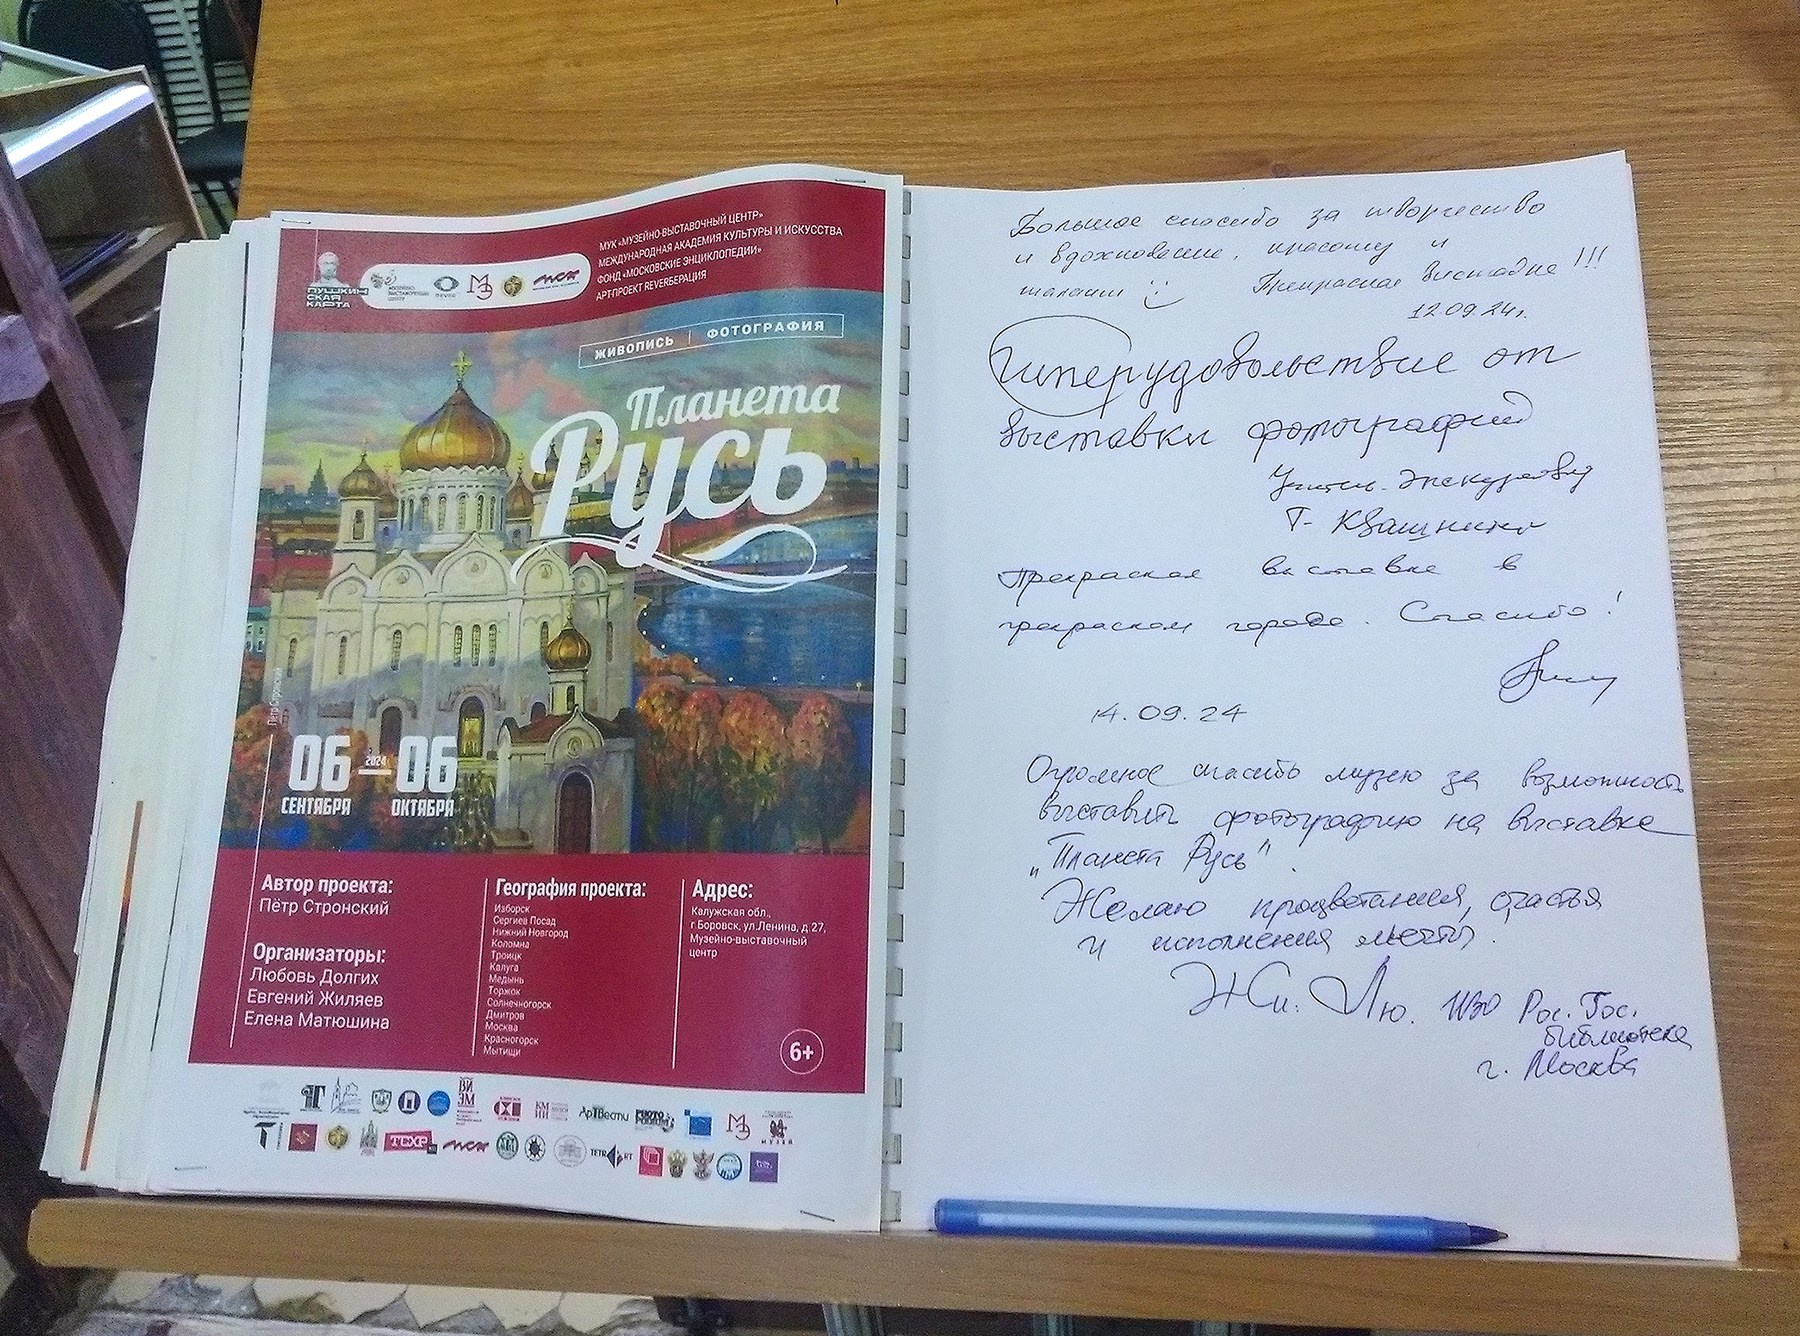 МУК «МУЗЕЙНО-ВЫСТАВОЧНЫЙ ЦЕНТР»
МЕЖДУНАРОДНАЯ АКАДЕМИЯ КУЛЬТУРЫ И ИСКУССТВА
ФОНД «МОСКОВСКИЕ ЭНЦИКЛОПЕДИИ»
АРТ-ПРОЕКТ REVERБЕРАЦИЯ
ПУШКИН
СКАЯ
КАРТА
ЖИВОПИСЬ | ФОТОГРАФИЯ
Планета
Русь
Пётр Стронский
06 — 06
2024
СЕНТЯБРЯ ОКТЯБРЯ
Автор проекта:
Пётр Стронский
Организаторы:
Любовь Долгих
Евгений Жиляев
Елена Матюшина
География проекта:
Изборск
Сергиев Посад
Нижний Новгород
Коломна
Троицк
Калуга
Медынь
Торжок
Солнечногорск
Дмитров
Москва
Красногорск
Мытищи
Адрес:
Калужская обл.,
г Боровск, ул.Ленина, д.27,
Музейно-выставочный
центр
6+
АртВести
PHOTO
МУЗЕЙ
ТЕХР
Большое спасибо за творчество
и вдохновение, красоту и
талант Прекрасная выставка!!!
12.09.24г.
Гиперудовольствие от
выставки фотографий
Учитель-экскурсовод
Т. Квашнина
Прекрасная выставка в
прекрасном городе. Спасибо!
14.09.24
Огромное спасибо музею за возможность
выставить фотографию на выставке
„Планета Русь".
Желаю процветания, счастья
и исполнения мечты.
Рос. Гос.
библиотека
г. Москва